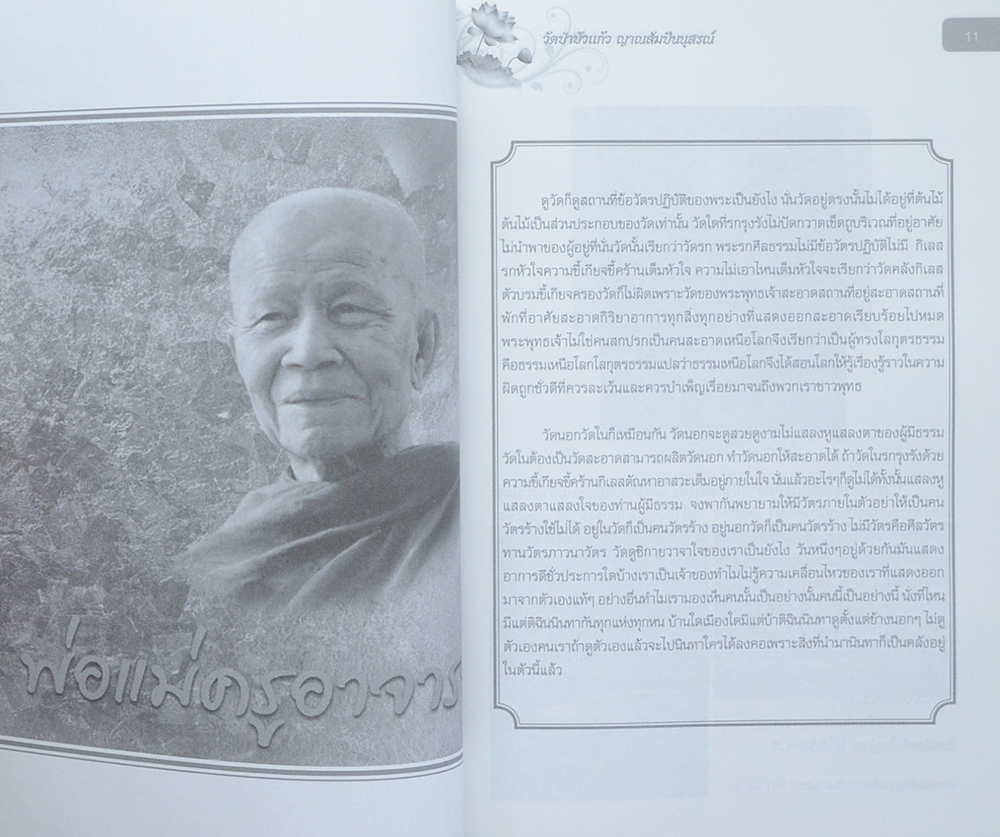 พ่อแม่ครูอาจาร
วัดป่าบัวแก้ว ญาณสัมปันนุสรณ์
11
ดูวัดก็ดูสถานที่ข้อวัตรปฏิบัติของพระเป็นยังไง นั่นวัดอยู่ตรงนั้นไม่ได้อยู่ที่ต้นไม้
ต้นไม้เป็นส่วนประกอบของวัดเท่านั้น วัดใดที่รกรุงรังไม่ปัดกวาดเช็ดถูบริเวณที่อยู่อาศัย
ไม่นำพาของผู้อยู่ที่นั่นวัดนั้นเรียกว่าวัดรก พระรกศีลธรรมไม่มีข้อวัตรปฏิบัติไม่มี กิเลส
รกหัวใจความขี้เกียจขี้คร้านเต็มหัวใจ ความไม่เอาไหนเต็มหัวใจจะเรียกว่าวัดคลังกิเลส
ตัวบรมขี้เกียจครองวัดก็ไม่ผิดเพราะวัดของพระพุทธเจ้าสะอาดสถานที่อยู่สะอาดสถานที่
พักที่อาศัยสะอาดกิริยาอาการทุกสิ่งทุกอย่างที่แสดงออกสะอาดเรียบร้อยไปหมด
พระพุทธเจ้าไม่ใช่คนสกปรกเป็นคนสะอาดเหนือโลกจึงเรียกว่าเป็นผู้ทรงโลกุตรธรรม
คือธรรมเหนือโลกโลกุตรธรรมแปลว่าธรรมเหนือโลกจึงได้สอนโลกให้รู้เรื่องรู้ราวในความ
ผิดถูกชั่วดีที่ควรละเว้นและควรบำเพ็ญเรื่อยมาจนถึงพวกเราชาวพุทธ
วัดนอกวัดในก็เหมือนกัน วัดนอกจะดูสวยดูงามไม่แสลงหูแสลงตาของผู้มีธรรม
วัดในต้องเป็นวัดสะอาดสามารถผลิตวัดนอก ทำวัดนอกให้สะอาดได้ ถ้าวัดในรกรุงรังด้วย
ความขี้เกียจขี้คร้านกิเลสตัณหาอาสวะเต็มอยู่ภายในใจ นั่นแล้วอะไรๆก็ดูไม่ได้ทั้งนั้นแสลงหู
แสลงตาแสลงใจของท่านผู้มีธรรม จงพากันพยายามให้มีวัตรภายในตัวอย่าให้เป็นคน
วัตรร้างใช้ไม่ได้ อยู่ในวัดก็เป็นคนวัตรร้าง อยู่นอกวัดก็เป็นคนวัตรร้าง ไม่มีวัตรคือศีลวัตร
ทานวัตรภาวนาวัตร วัดดูซิกายวาจาใจของเราเป็นยังไง วันหนึ่งๆอยู่ด้วยกันมันแสดง
อาการดีชั่วประการใดบ้างเราเป็นเจ้าของทำไมไม่รู้ความเคลื่อนไหวของเราที่แสดงออก
มาจากตัวเองแท้ๆ อย่างอื่นทำไมเรามองเห็นคนนั้นเป็นอย่างนั้นคนนี้เป็นอย่างนี้ นั่งที่ไหน
มีแต่ติฉินนินทากันทุกแห่งทุกหน บ้านใดเมืองใดมีแต่บ้าติฉินนินทาดูตั้งแต่ข้างนอกๆ ไม่ดู
ตัวเองคนเราถ้าดูตัวเองแล้วจะไปนินทาใครได้ลงคอเพราะสิ่งที่นำมานินทาก็เป็นคลังอยู่
ในตัวนี้แล้ว